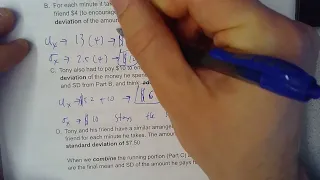 B. For each minute it
friend $4 (to encourag
deviation of the amou
Ux → 13 (4) → $
σx → 2.5 (4) → $
C. Tony also had to pay $10 to en
deviation of the money he spen
and SD from Part B, and think
Ux → $52 + 10 → $6
σx → $10 stays the
D. Tony and his friend have a similar arrange
friend for each minute he takes. The amou
standard deviation of $7.50
When we combine the running portion (Part C)
are the final mean and SD of the amount he pays